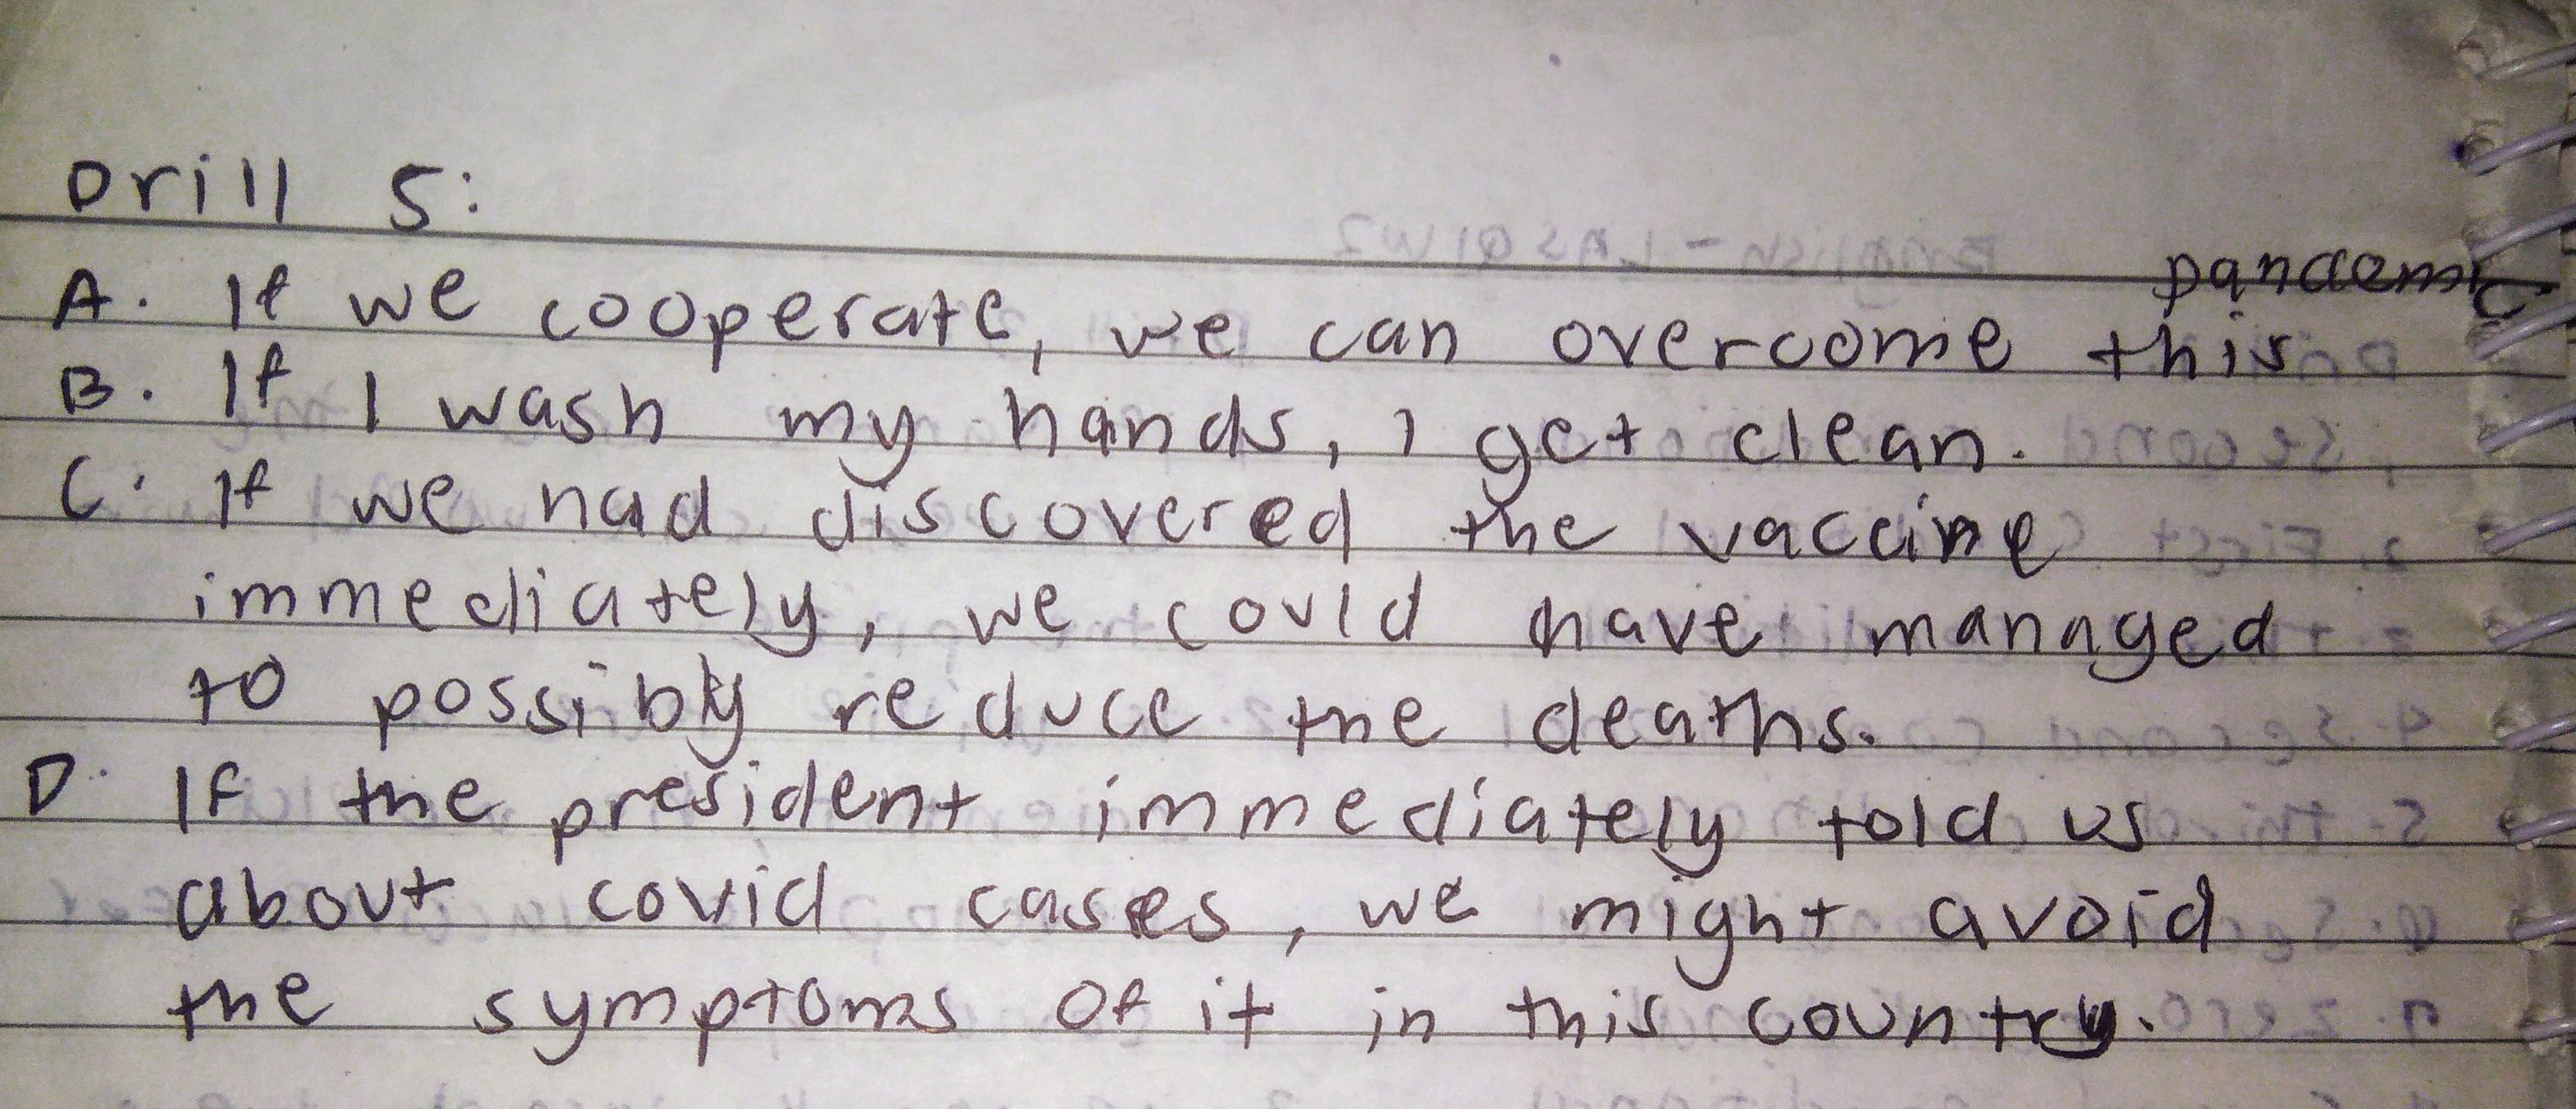 Drill 5:
A. If we cooperate, we can overcome this pandemic
B. If I wash my hands, I get clean.
C. If we had discovered the vaccine
immediately, we could have managed
to possibly reduce the deaths.
D. If the president immediately told us
about covid cases, we might avoid
the symptoms of it in this country.